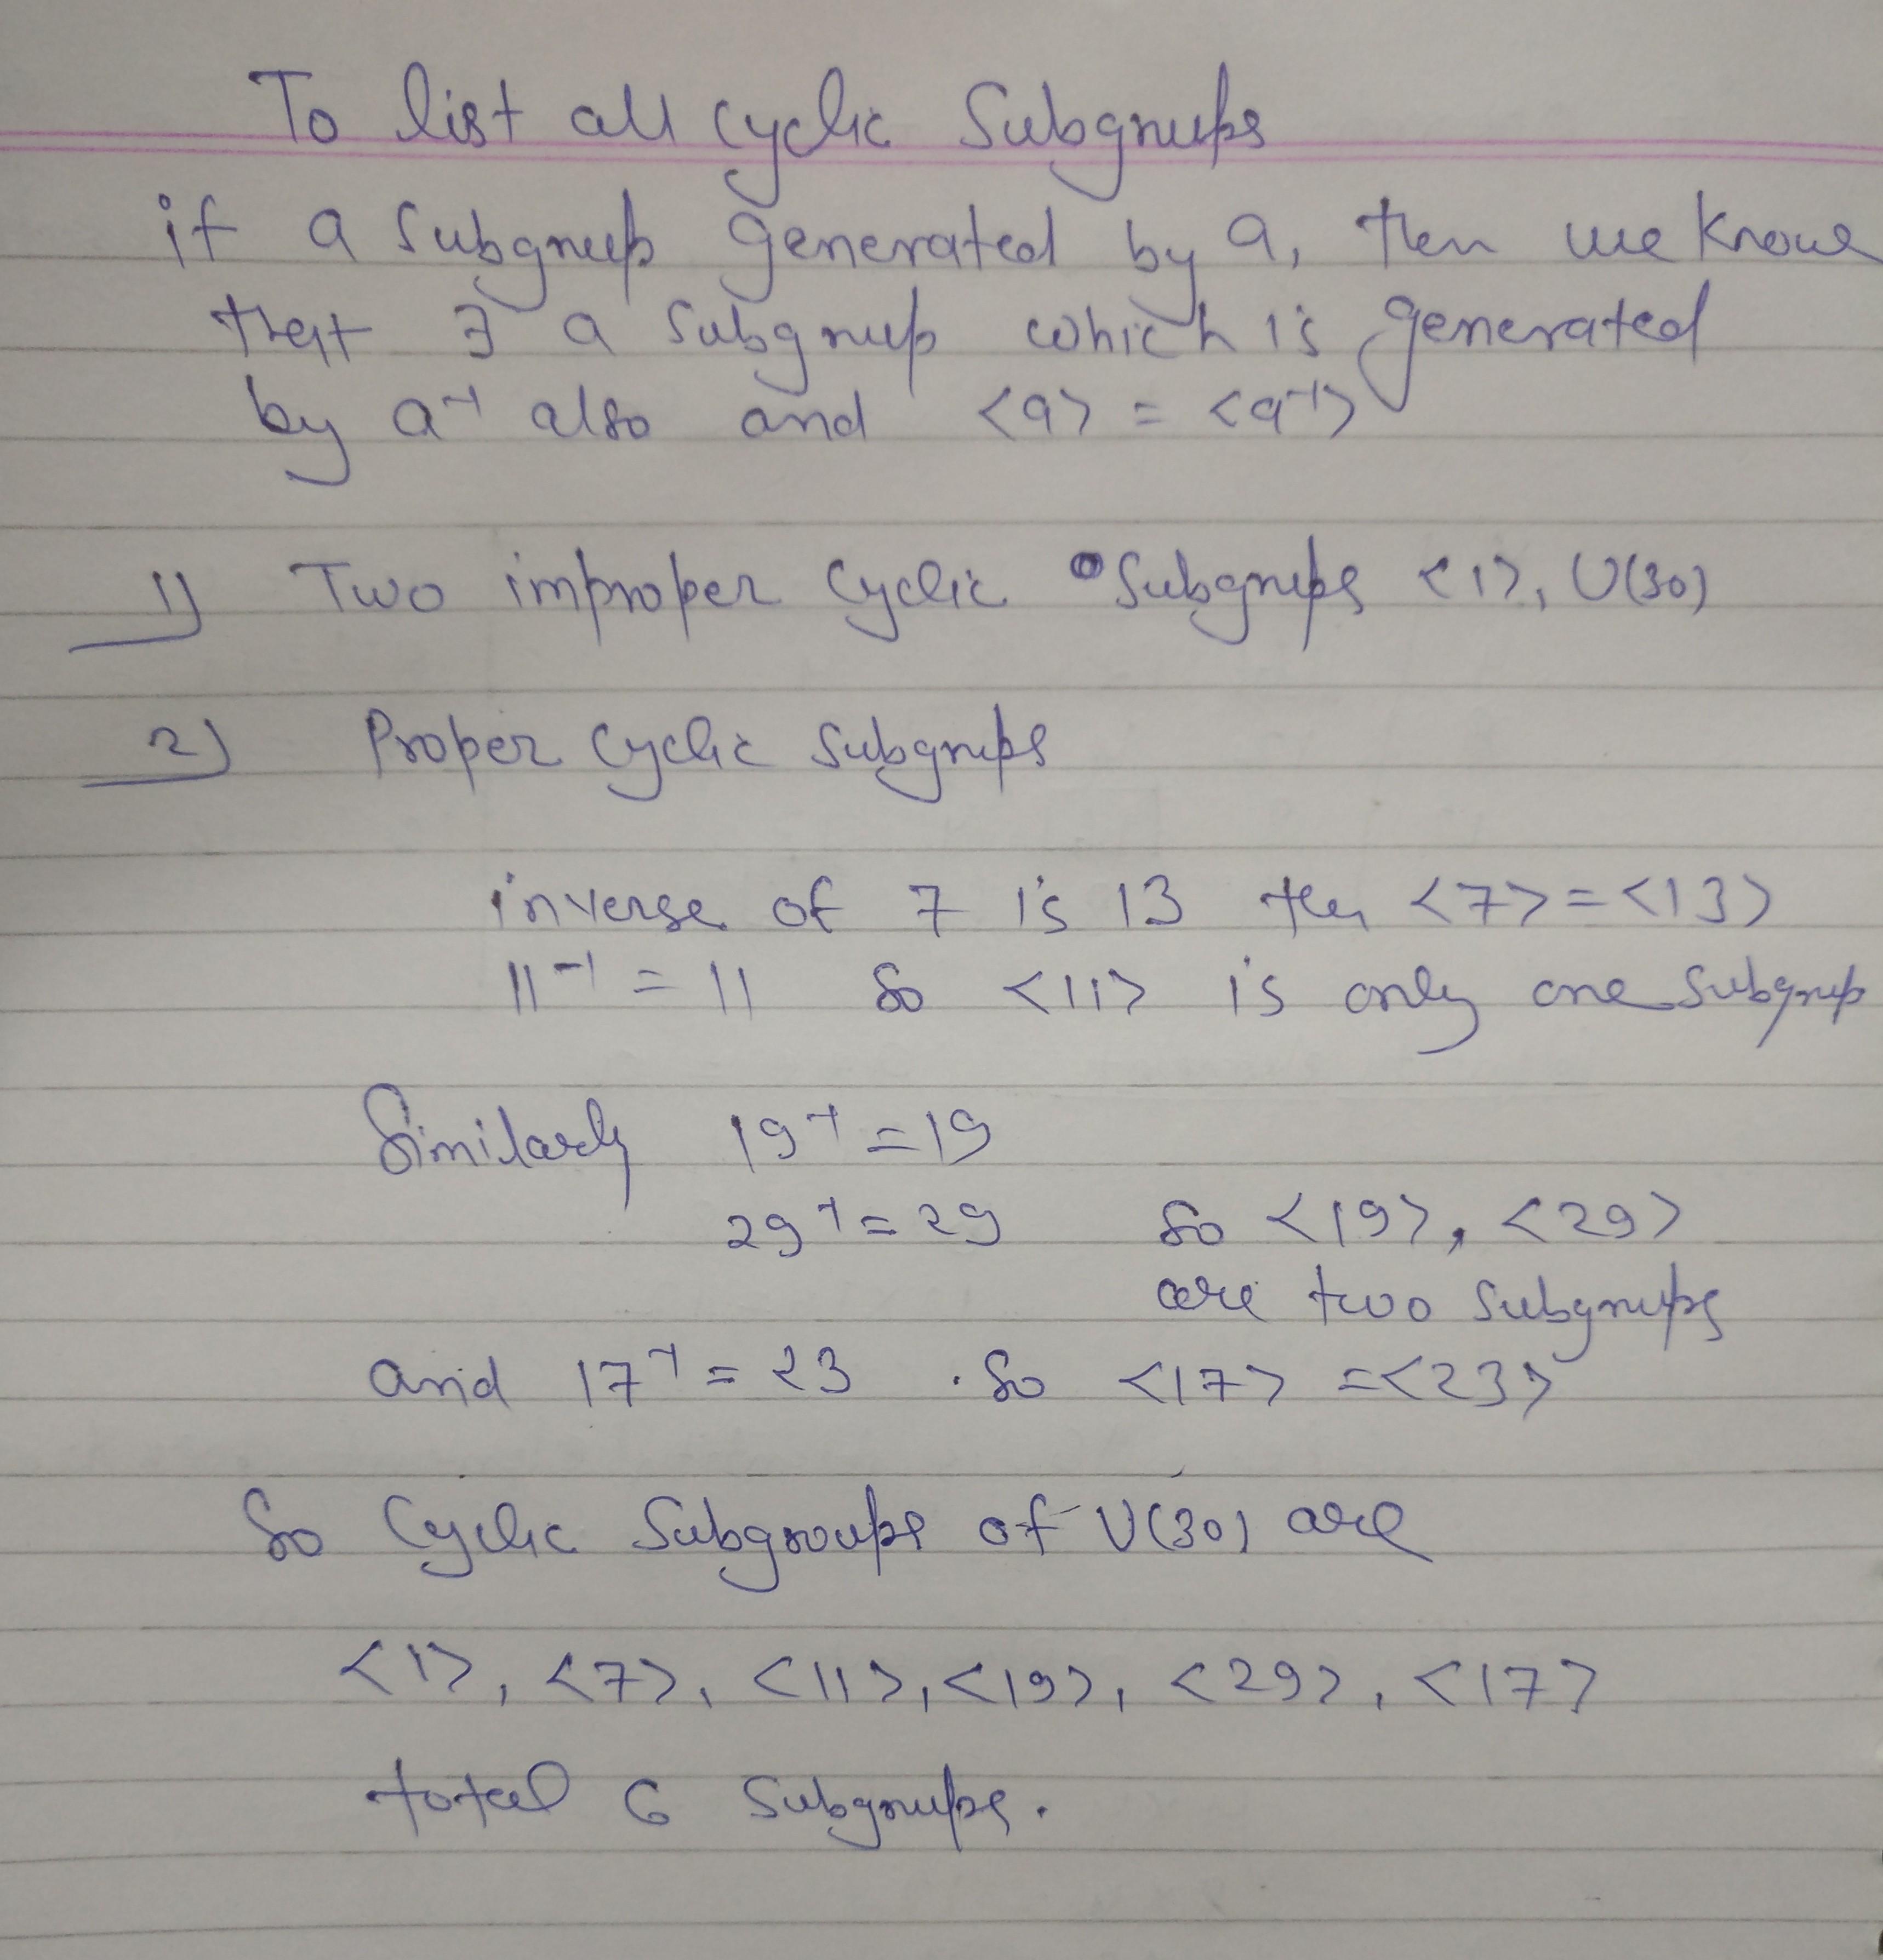 To list all cyclic Subgroups
if a subgroup generated by a, then we know
that ∃ a subgroup which is generated
by a⁻¹ also and <a> = <a⁻¹>
1) Two improper cyclic subgroups <1>, U(30)
2) Proper cyclic subgroups
inverse of 7 is 13 then <7> = <13>
11⁻¹ = 11 so <11> is only one subgroup
Similarly 19⁻¹ = 19
29⁻¹ = 29 so <19>, <29>
are two subgroups
and 17⁻¹ = 23 . So <17> = <23>
So Cyclic Subgroups of U(30) are
<1>, <7>, <11>, <19>, <29>, <17>
total 6 subgroups.